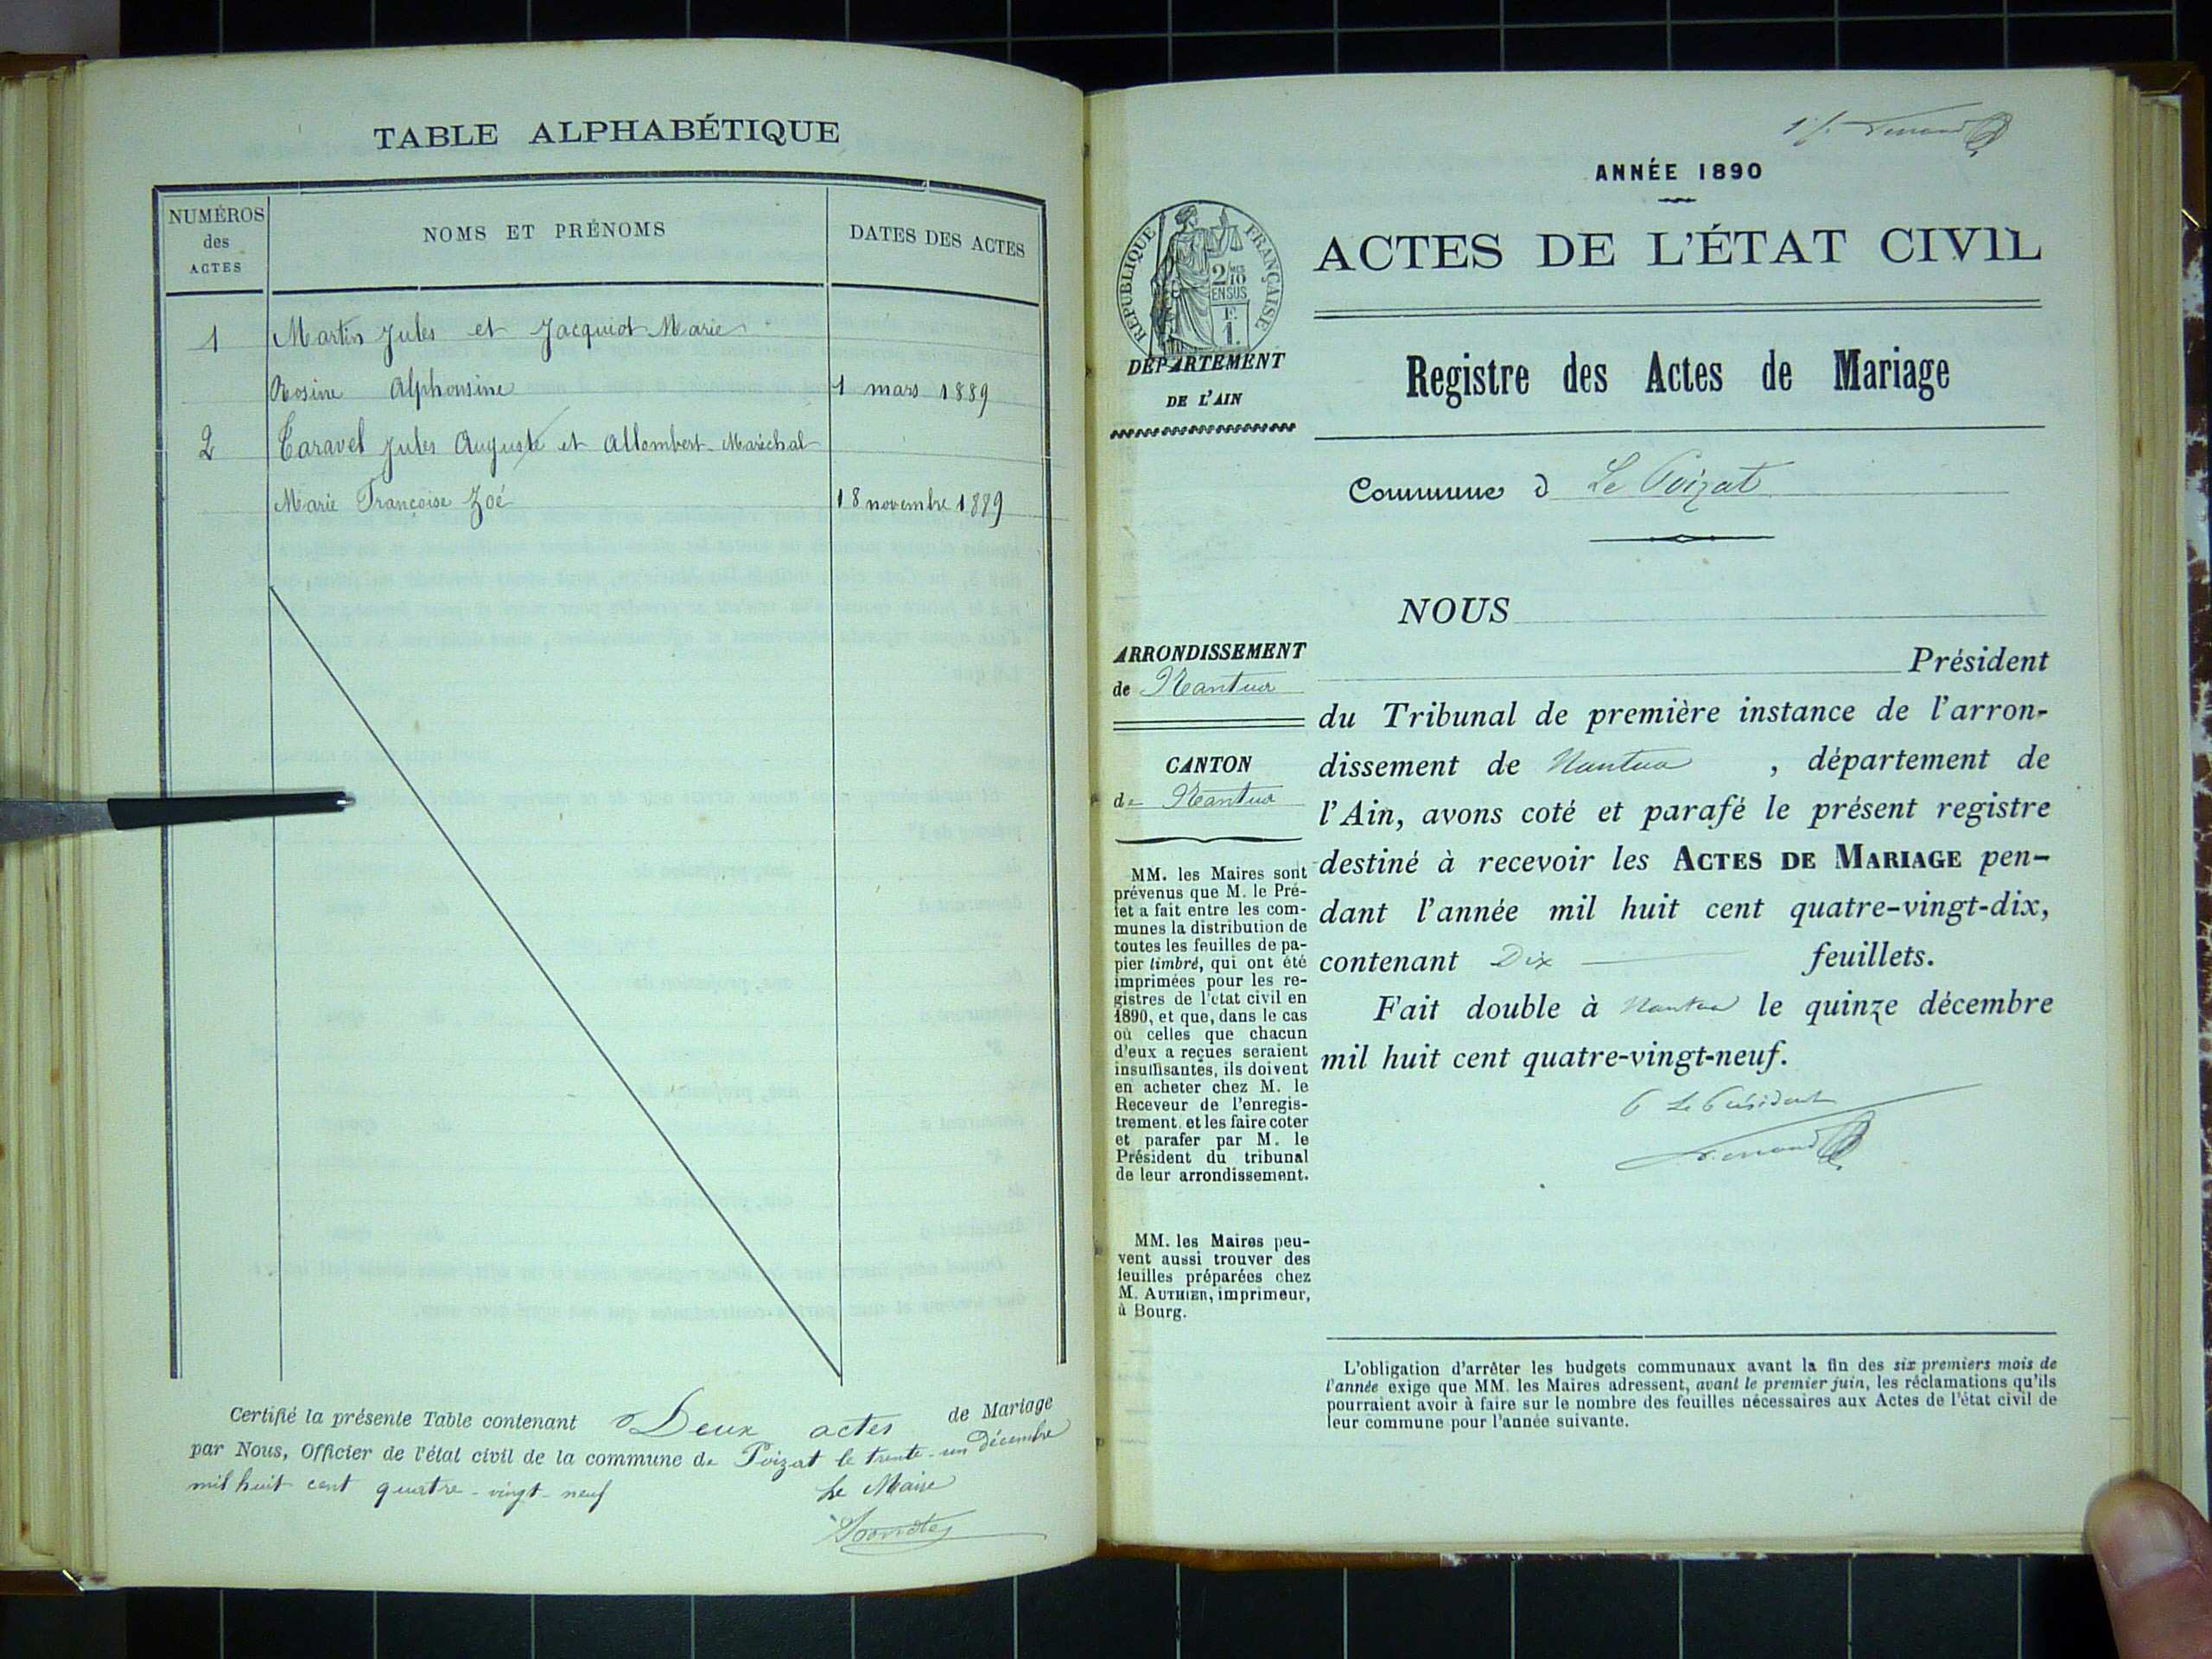 TABLE ALPHABÉTIQUE
NUMÉROS
des
ACTES
NOMS ET PRÉNOMS
DATES DES ACTES
1 Martin Jules et Jacquiot Marie
Rosine Alphonsine 1 mars 1889
2 Caravel Jules Auguste et Allombert-Maréchal
Marie Françoise Zoé 18 novembre 1889
Certifié la présente Table contenant Deux actes de Mariage
par Nous, Officier de l'état civil de la commune de Poizat le trente-un décembre
mil huit cent quatre-vingt-neuf
Le Maire
ANNÉE 1890
RÉPUBLIQUE FRANÇAISE
2/10
EN SUS
1.
ACTES DE L'ÉTAT CIVIL
DÉPARTEMENT
DE L'AIN
Registre des Actes de Mariage
Commune d Le Poizat
NOUS
Président
du Tribunal de première instance de l'arron-
dissement de Nantua, département de
l'Ain, avons coté et parafé le présent registre
destiné à recevoir les ACTES DE MARIAGE pen-
dant l'année mil huit cent quatre-vingt-dix,
contenant Dix feuillets.
Fait double à Nantua le quinze décembre
mil huit cent quatre-vingt-neuf.
Le Président
ARRONDISSEMENT
de Nantua
CANTON
de Nantua
MM. les Maires sont
prévenus que M. le Pré-
fet a fait entre les com-
munes la distribution de
toutes les feuilles de pa-
pier timbré, qui ont été
imprimées pour les re-
gistres de l'état civil en
1890, et que, dans le cas
où celles que chacun
d'eux a reçues seraient
insuffisantes, ils doivent
en acheter chez M. le
Receveur de l'enregis-
trement. et les faire coter
et parafer par M. le
Président du tribunal
de leur arrondissement.
MM. les Maires peu-
vent aussi trouver des
feuilles préparées chez
M. AUTHIER, imprimeur,
à Bourg.
L'obligation d'arrêter les budgets communaux avant la fin des six premiers mois de
l'année exige que MM. les Maires adressent, avant le premier juin, les réclamations qu'ils
pourraient avoir à faire sur le nombre des feuilles nécessaires aux Actes de l'état civil de
leur commune pour l'année suivante.